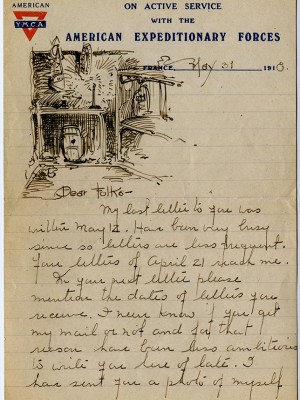 AMERICAN
YMCA
ON ACTIVE SERVICE
WITH THE
AMERICAN EXPEDITIONARY FORCES
FRANCE, May 31 1918.
Dear Folks—
My last letter to you was
written May 12. Have been very busy
since so letters are less frequent.
Your letters of April 21 reach me.
In your next letter please
mention the dates of letters you
receive. I never know if you get
my mail or not and for that
reason have been less ambitious
to write you here of late. I
have sent you a photo of myself